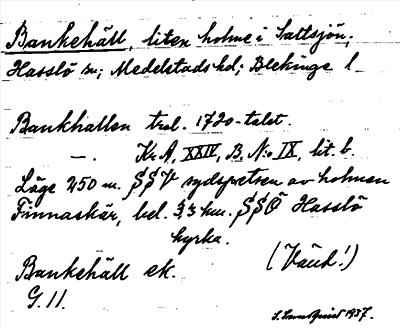 Bankehäll, liten holme i Saltsjön;
Hasslö sn; Medelstads hd; Blekinge l
Bankhallen trol. 1720-talet.
—. Kr. A, XXIV, B. N:o IX, lit. b.
Läge 250 m. SSV sydspetsen av holmen
Finnaskär, bel. 3,3 km. SSÖ Hasslö
kyrka.
Bankehäll ek. (Vänd!)
G. 11.
1937.